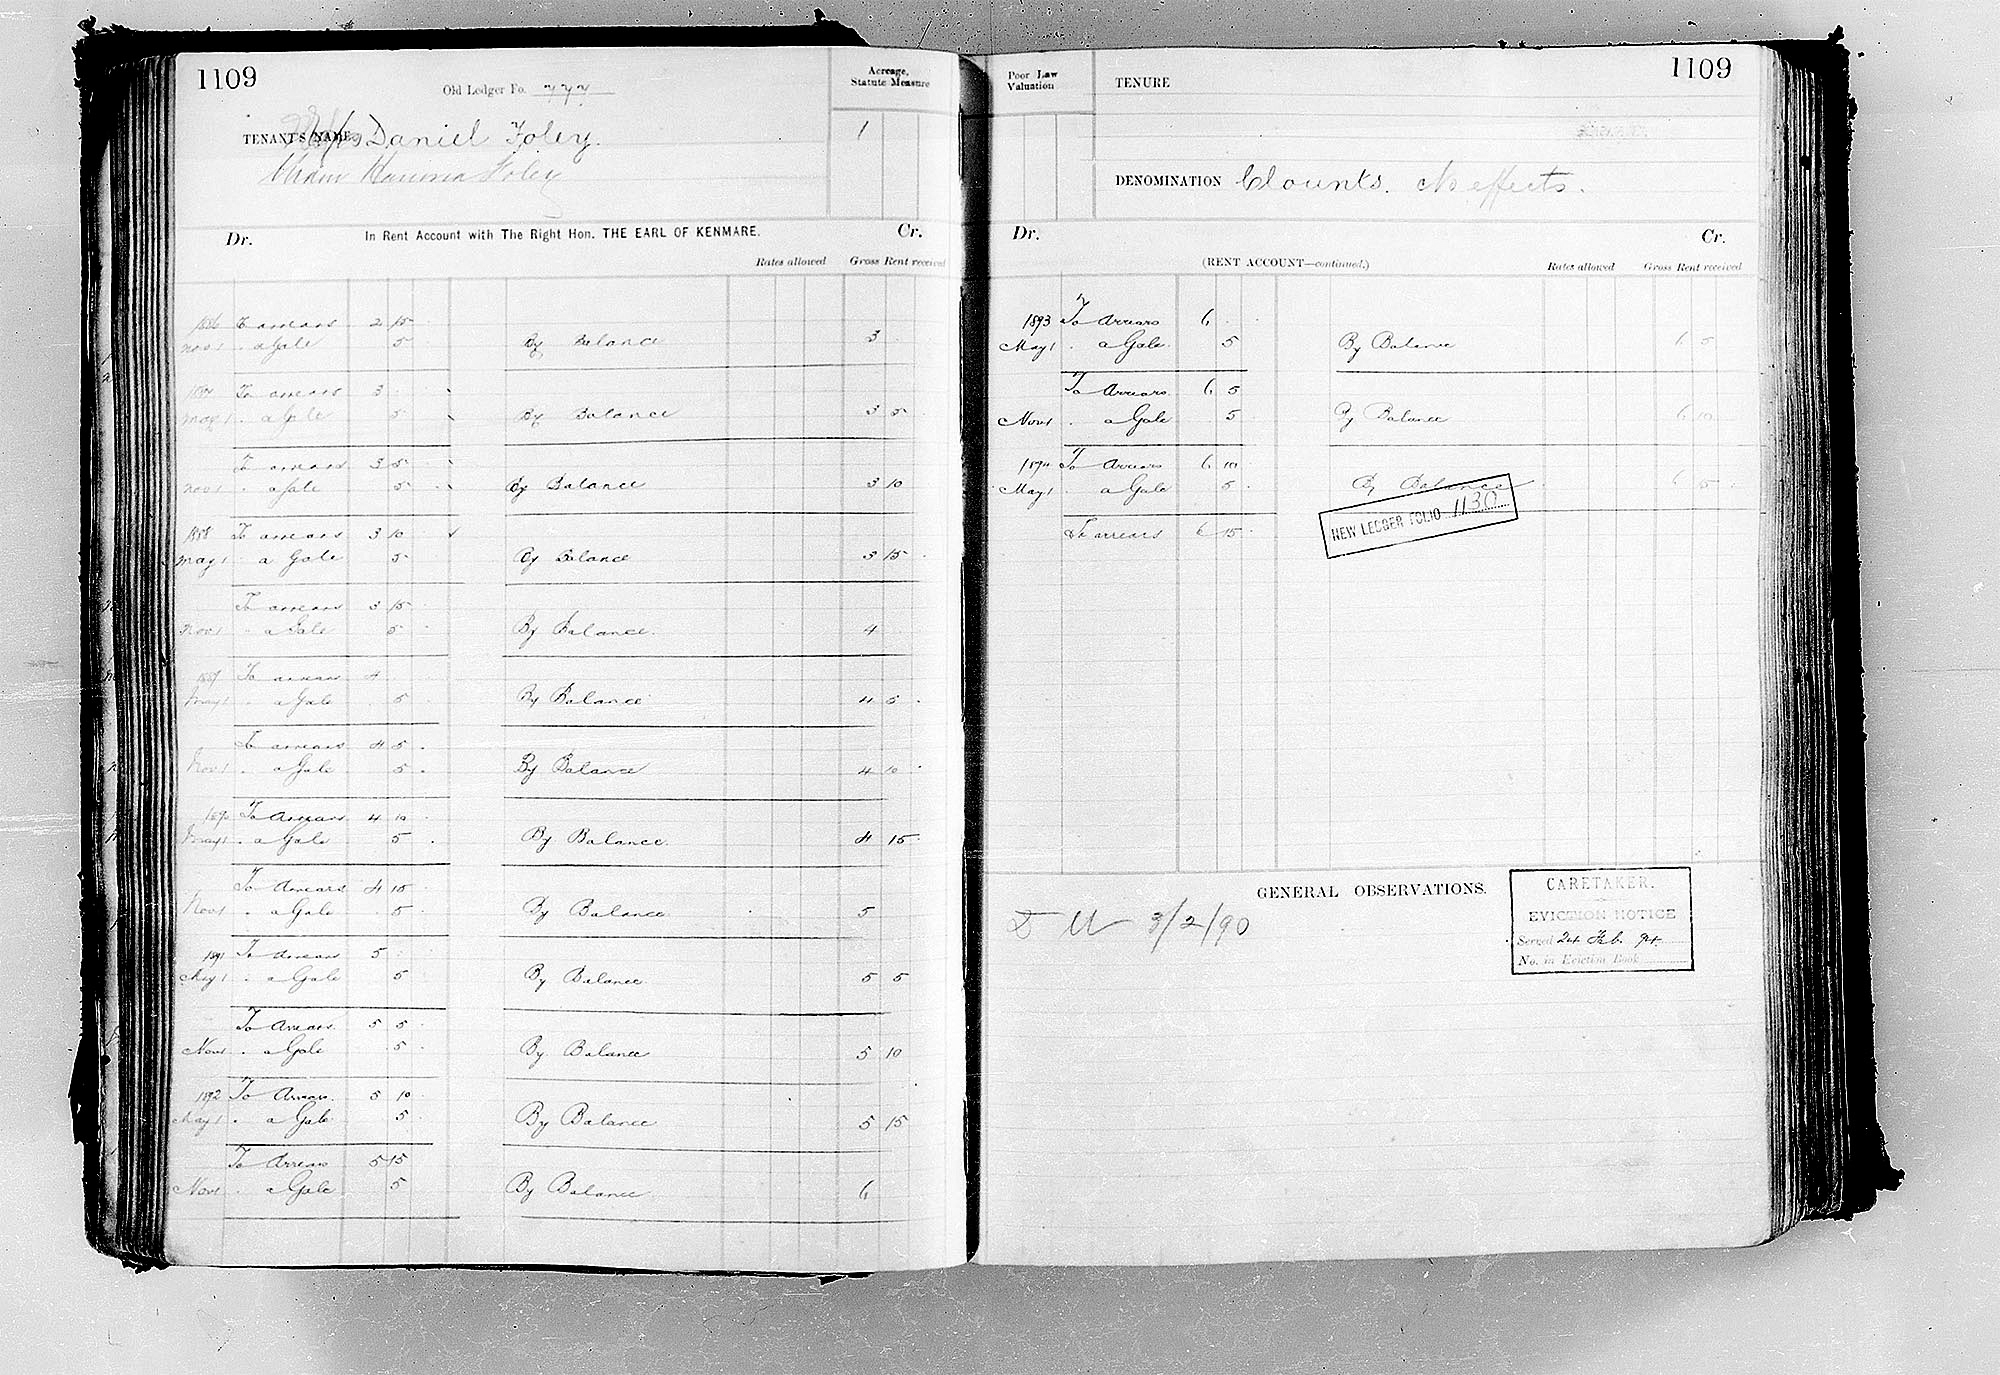 1109
Old Ledger Fo. 777
Acreage, Statute Measure
TENANT'S NAME Daniel Foley.
1
Widow Hanna Foley
Dr. In Rent Account with The Right Hon. THE EARL OF KENMARE. Cr.
Rates allowed Gross Rent received
1886 To arrears 2 15
Nov 1 . a Gale 5 By Balance 3
1887 To arrears 3
May 1 . a Gale 5 By Balance 3 5
To arrears 3 5
Nov 1 . a Gale 5 By Balance 3 10
1888 To arrears 3 10
May 1 a Gale 5 By Balance 3 15
To arrears 3 15
Nov 1 . a Gale 5 By Balance. 4
1889 To arrears 4
May 1 a Gale 5 By Balance 4 5
To arrears 4 5
Nov 1 . a Gale 5 By Balance 4 10
1890 To Arrears 4 10
May 1 . a Gale 5 By Balance 4 15
To Arrears 4 15
Nov 1 . a Gale 5 By Balance 5
1891 To Arrears 5
May 1 . a Gale 5 By Balance 5 5
To Arrears 5 5
Nov 1 . a Gale 5 By Balance 5 10
1892 To Arrears 5 10
May 1 . a Gale 5 By Balance 5 15
To Arrears 5 15
Nov 1 . a Gale 5 By Balance 6
Poor Law Valuation
TENURE
1109
DENOMINATION Clounts. No effects.
Dr. Cr.
(RENT ACCOUNT—continued.) Rates allowed Gross Rent received
1893 To Arrears 6
May 1 . a Gale 5 By Balance 6 5
To Arrears 6 5
Nov 1 . a Gale 5 By Balance 6 10
1894 To Arrears 6 10
May 1 . a Gale 5 By Balance 6 15
To arrears 6 15
NEW LEDGER FOLIO 1130
GENERAL OBSERVATIONS.
3/2/90
CARETAKER.
EVICTION NOTICE
Served 24 Feb. 94
No. in Eviction Book